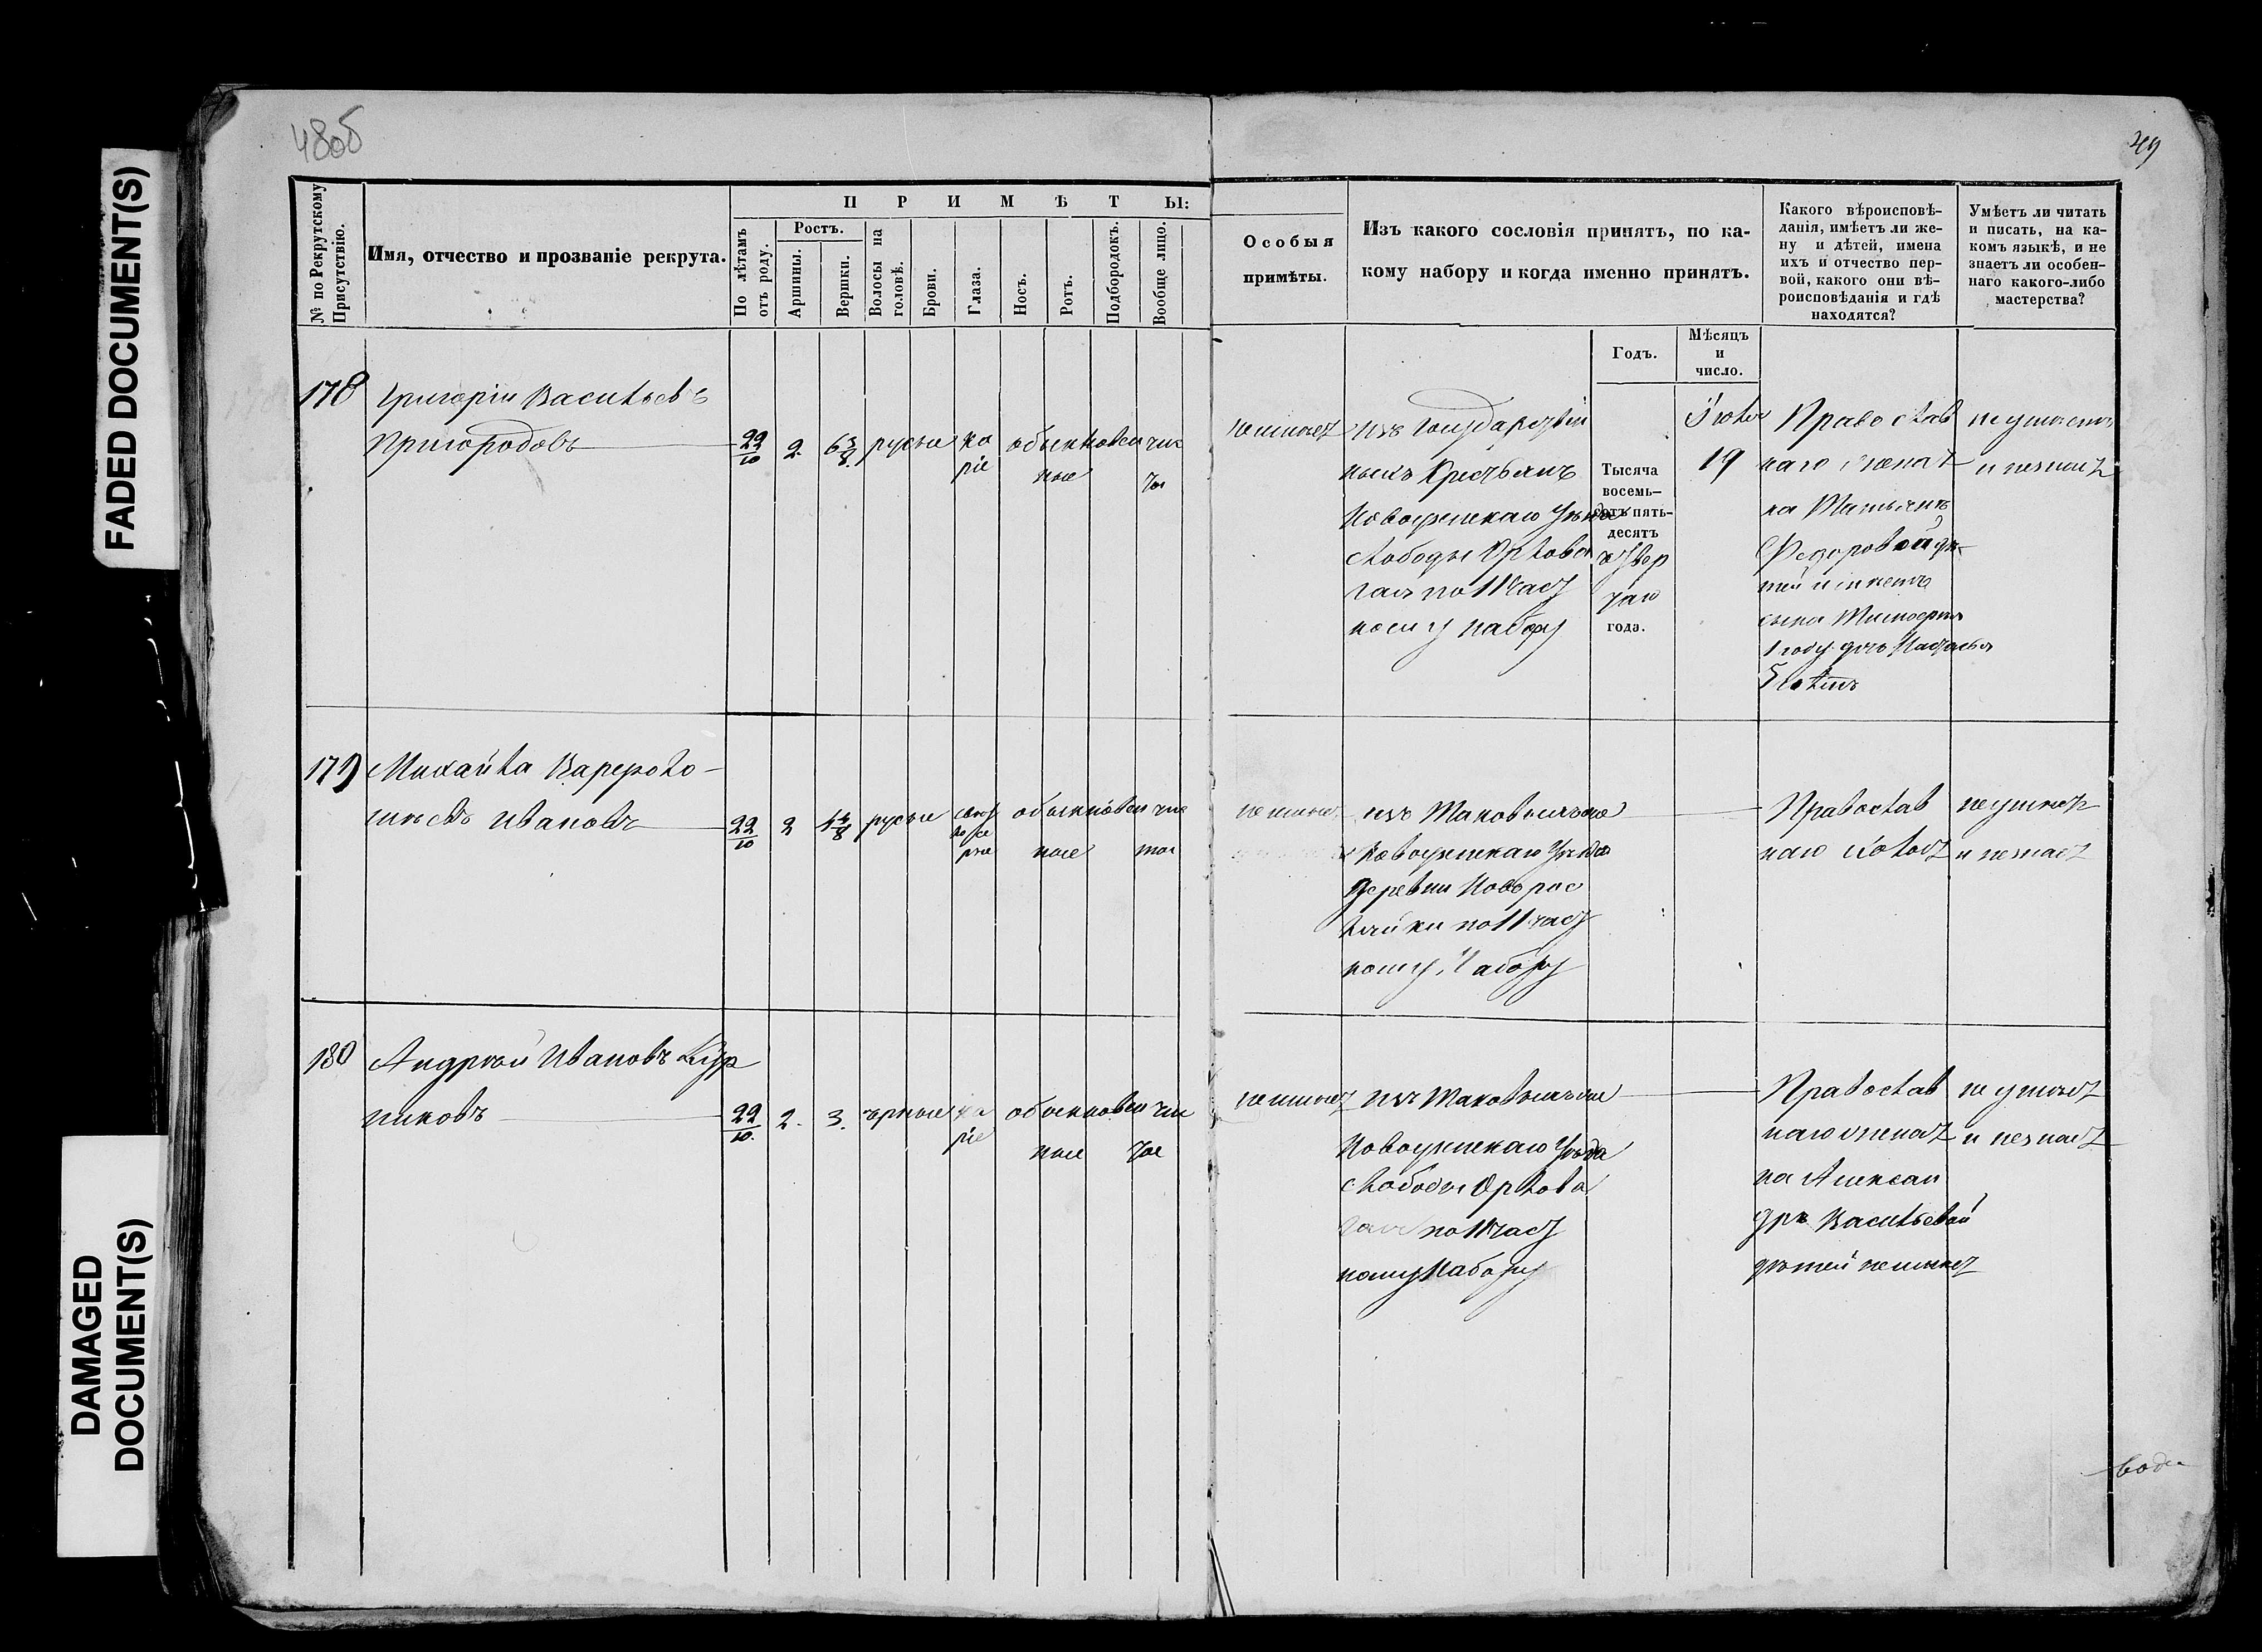 FADED DOCUMENT(S)
DAMAGED
DOCUMENT(S)
48об
49
№ по Рекрутскому
Присутствію.
Имя, отчество и прозваніе рекрута.
П Р И М Ѣ Т Ы:
По лѣтамъ
отъ роду.
Ростъ.
Аршины.
Вершки.
Волосы на
головѣ.
Брови.
Глаза.
Носъ.
Ротъ.
Подбородокъ.
Вообще лицо.
Особыя
примѣты.
Изъ какого сословія принятъ, по ка-
кому набору и когда именно принятъ.
Какого вѣроисповѣ-
данія, имѣетъ ли же-
ну и дѣтей, имена
ихъ и отчество пер-
вой, какого они вѣ-
роисповѣданія и гдѣ
находятся?
Умѣетъ ли читать
и писать, на ка-
комъ языкѣ, и не
знаетъ ли особен-
наго какого-либо
мастерства?
Годъ.
Мѣсяцъ
и
число.
178
Григорій Васильевъ
Пригородовъ
22/10
2.
6 3/8.
русые
ка
ріе
обыкновен
ные
чис
тое
неимѣет
изъ Государствен
ныхъ Крестьянъ
Новоузенскаго Уѣзда
Слободы Орлова
гая по 11 част
ному набору
Тысяча
восемь-
сотъ пять-
десятъ
четвер
таго
года.
Іюля
19
Православ
наго женат
на Татьянѣ
Федоровой дѣ
тей имѣетъ
сына
1 году дочь Настасья
5 лѣтъ
неумѣет
и незнает
179
Михайла
Ивановъ
22/10
2
4 3/8
русые
свет
ло се
рые
обыкновен
ное
чис
тое
неимѣет
изъ Таковыхъ же
Новоузенскаго Уѣзда
Деревни
по 11 част
ному Набору
Православ
наго холост
неумѣет
и незнает
180
Андрей Ивановъ Кур
никовъ
22/10.
2.
3.
чрные
ка
ріе
обыкновен
ные
чис
тое
неимѣет
изъ Таковыхъ же
Новоузенскаго Уѣзда
Слободы Орлова
гая по 11 част
ному Набору
Православ
наго женат
на Алексан
дрѣ Васильевой
дѣтей неимѣет
неумѣет
и незнает